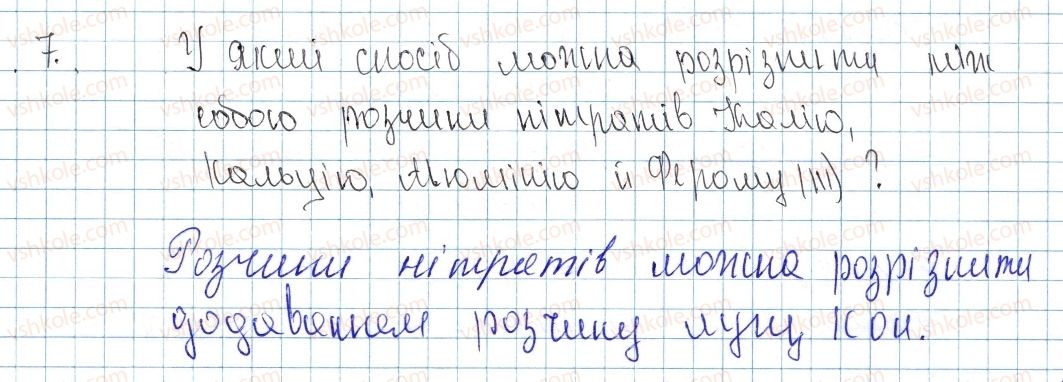 7. У який спосіб можна розрізнити між
собою розчини нітратів Калію,
Кальцію, Алюмінію й Феруму (III)?
Розчини нітратів можна розрізнити
додаванням розчину лугу KOH.